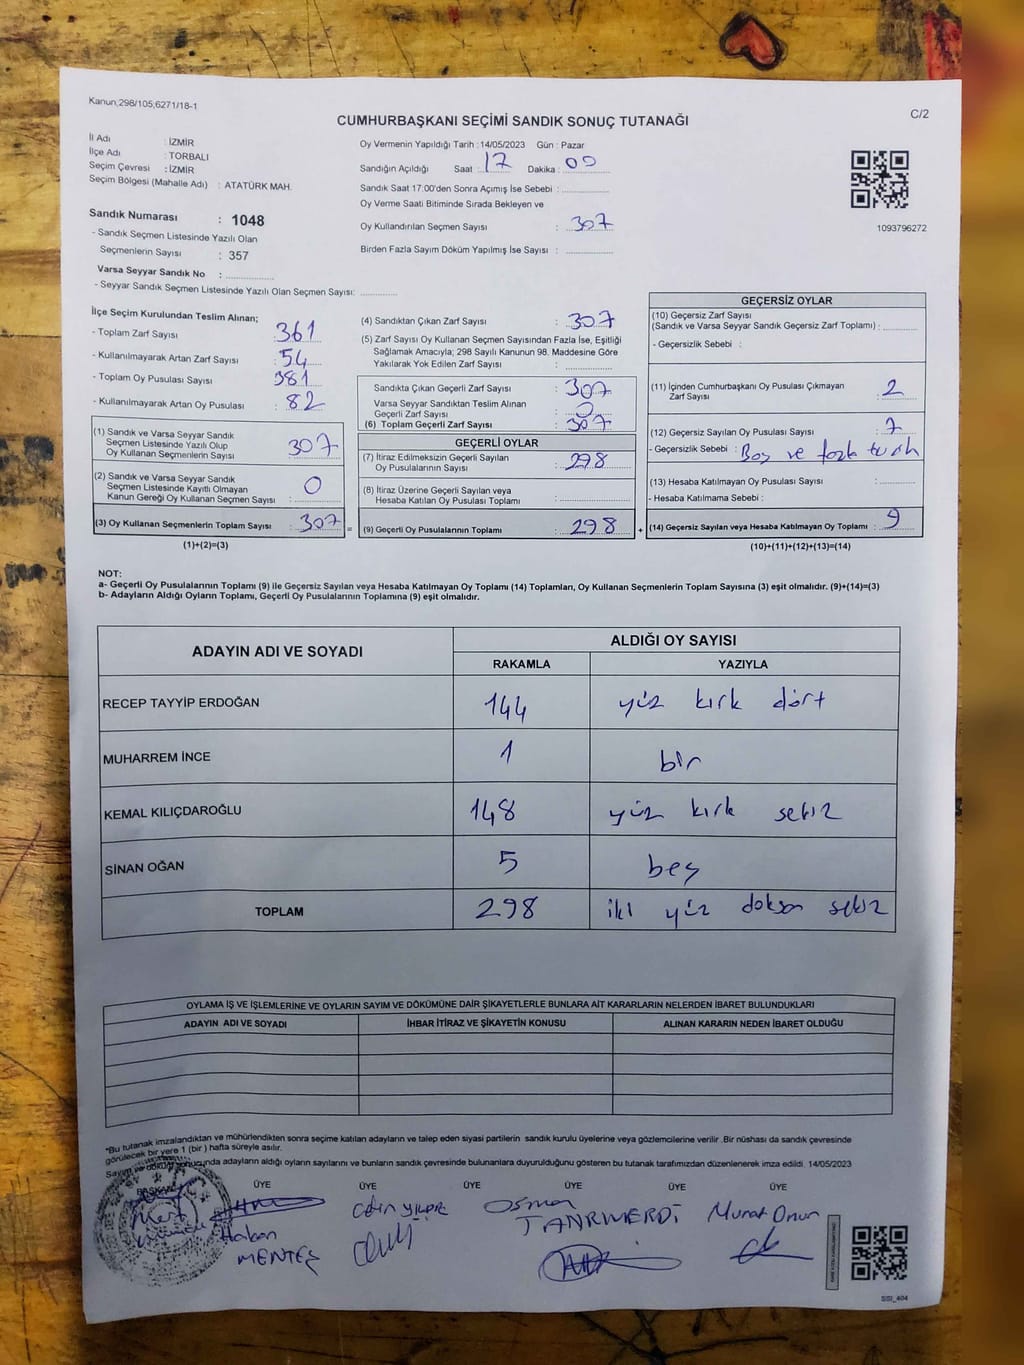 Kanun;298/105;6271/18-1
C/2
CUMHURBAŞKANI SEÇİMİ SANDIK SONUÇ TUTANAĞI
İl Adı : İZMİR
İlçe Adı : TORBALI
Seçim Çevresi : İZMİR
Seçim Bölgesi (Mahalle Adı) : ATATÜRK MAH.
Sandık Numarası : 1048
- Sandık Seçmen Listesinde Yazılı Olan
Seçmenlerin Sayısı : 357
Varsa Seyyar Sandık No :
- Seyyar Sandık Seçmen Listesinde Yazılı Olan Seçmen Sayısı:
Oy Vermenin Yapıldığı Tarih : 14/05/2023 Gün : Pazar
Sandığın Açıldığı Saat : 17 Dakika : 00
Sandık Saat 17:00'den Sonra Açımış İse Sebebi :
Oy Verme Saati Bitiminde Sırada Bekleyen ve
Oy Kullandırılan Seçmen Sayısı : 307
Birden Fazla Sayım Döküm Yapılmış İse Sayısı :
1093796272
İlçe Seçim Kurulundan Teslim Alınan;
- Toplam Zarf Sayısı : 361
- Kullanılmayarak Artan Zarf Sayısı : 54
- Toplam Oy Pusulası Sayısı : 381
- Kullanılmayarak Artan Oy Pusulası : 82
(1) Sandık ve Varsa Seyyar Sandık
Seçmen Listesinde Yazılı Olup
Oy Kullanan Seçmenlerin Sayısı : 307
(2) Sandık ve Varsa Seyyar Sandık
Seçmen Listesinde Kayıtlı Olmayan
Kanun Gereği Oy Kullanan Seçmen Sayısı : 0
(3) Oy Kullanan Seçmenlerin Toplam Sayısı : 307
(1)+(2)=(3)
(4) Sandıktan Çıkan Zarf Sayısı : 307
(5) Zarf Sayısı Oy Kullanan Seçmen Sayısından Fazla İse, Eşitliği
Sağlamak Amacıyla; 298 Sayılı Kanunun 98. Maddesine Göre
Yakılarak Yok Edilen Zarf Sayısı :
Sandıkta Çıkan Geçerli Zarf Sayısı : 307
Varsa Seyyar Sandıktan Teslim Alınan
Geçerli Zarf Sayısı : 0
(6) Toplam Geçerli Zarf Sayısı : 307
GEÇERLİ OYLAR
(7) İtiraz Edilmeksizin Geçerli Sayılan
Oy Pusulalarının Sayısı : 298
(8) İtiraz Üzerine Geçerli Sayılan veya
Hesaba Katılan Oy Pusulası Toplamı :
= (9) Geçerli Oy Pusulalarının Toplamı : 298 +
GEÇERSİZ OYLAR
(10) Geçersiz Zarf Sayısı
(Sandık ve Varsa Seyyar Sandık Geçersiz Zarf Toplamı) :
- Geçersizlik Sebebi :
(11) İçinden Cumhurbaşkanı Oy Pusulası Çıkmayan
Zarf Sayısı : 2
(12) Geçersiz Sayılan Oy Pusulası Sayısı : 7
- Geçersizlik Sebebi : Boş ve fazla
(13) Hesaba Katılmayan Oy Pusulası Sayısı :
- Hesaba Katılmama Sebebi :
(14) Geçersiz Sayılan veya Hesaba Katılmayan Oy Toplamı : 9
(10)+(11)+(12)+(13)=(14)
NOT:
a- Geçerli Oy Pusulalarının Toplamı (9) ile Geçersiz Sayılan veya Hesaba Katılmayan Oy Toplamı (14) Toplamları, Oy Kullanan Seçmenlerin Toplam Sayısına (3) eşit olmalıdır. (9)+(14)=(3)
b- Adayların Aldığı Oyların Toplamı, Geçerli Oy Pusulalarının Toplamına (9) eşit olmalıdır.
ADAYIN ADI VE SOYADI ALDIĞI OY SAYISI
RAKAMLA YAZIYLA
RECEP TAYYİP ERDOĞAN 144 yüz kırk dört
MUHARREM İNCE 1 bir
KEMAL KILIÇDAROĞLU 148 yüz kırk sekiz
SİNAN OĞAN 5 beş
TOPLAM 298 iki yüz doksan sekiz
OYLAMA İŞ VE İŞLEMLERİNE VE OYLARIN SAYIM VE DÖKÜMÜNE DAİR ŞİKAYETLERLE BUNLARA AİT KARARLARIN NELERDEN İBARET BULUNDUKLARI
ADAYIN ADI VE SOYADI İHBAR İTİRAZ VE ŞİKAYETİN KONUSU ALINAN KARARIN NEDEN İBARET OLDUĞU
*Bu tutanak imzalandıktan ve mühürlendikten sonra seçime katılan adayların ve talep eden siyasi partilerin sandık kurulu üyelerine veya gözlemcilerine verilir. Bir nüshası da sandık çevresinde
görülecek bir yere 1 (bir) hafta süreyle asılır.
Sayım ve döküm sonucunda adayların aldığı oyların sayılarını ve bunların sandık çevresinde bulunanlara duyurulduğunu gösteren bu tutanak tarafımızdan düzenlenerek imza edildi. 14/05/2023
BAŞKAN ÜYE ÜYE ÜYE ÜYE ÜYE ÜYE
Hakan
MENTEŞ
Osman
TANRIVERDİ
Murat Onur
SSI_404